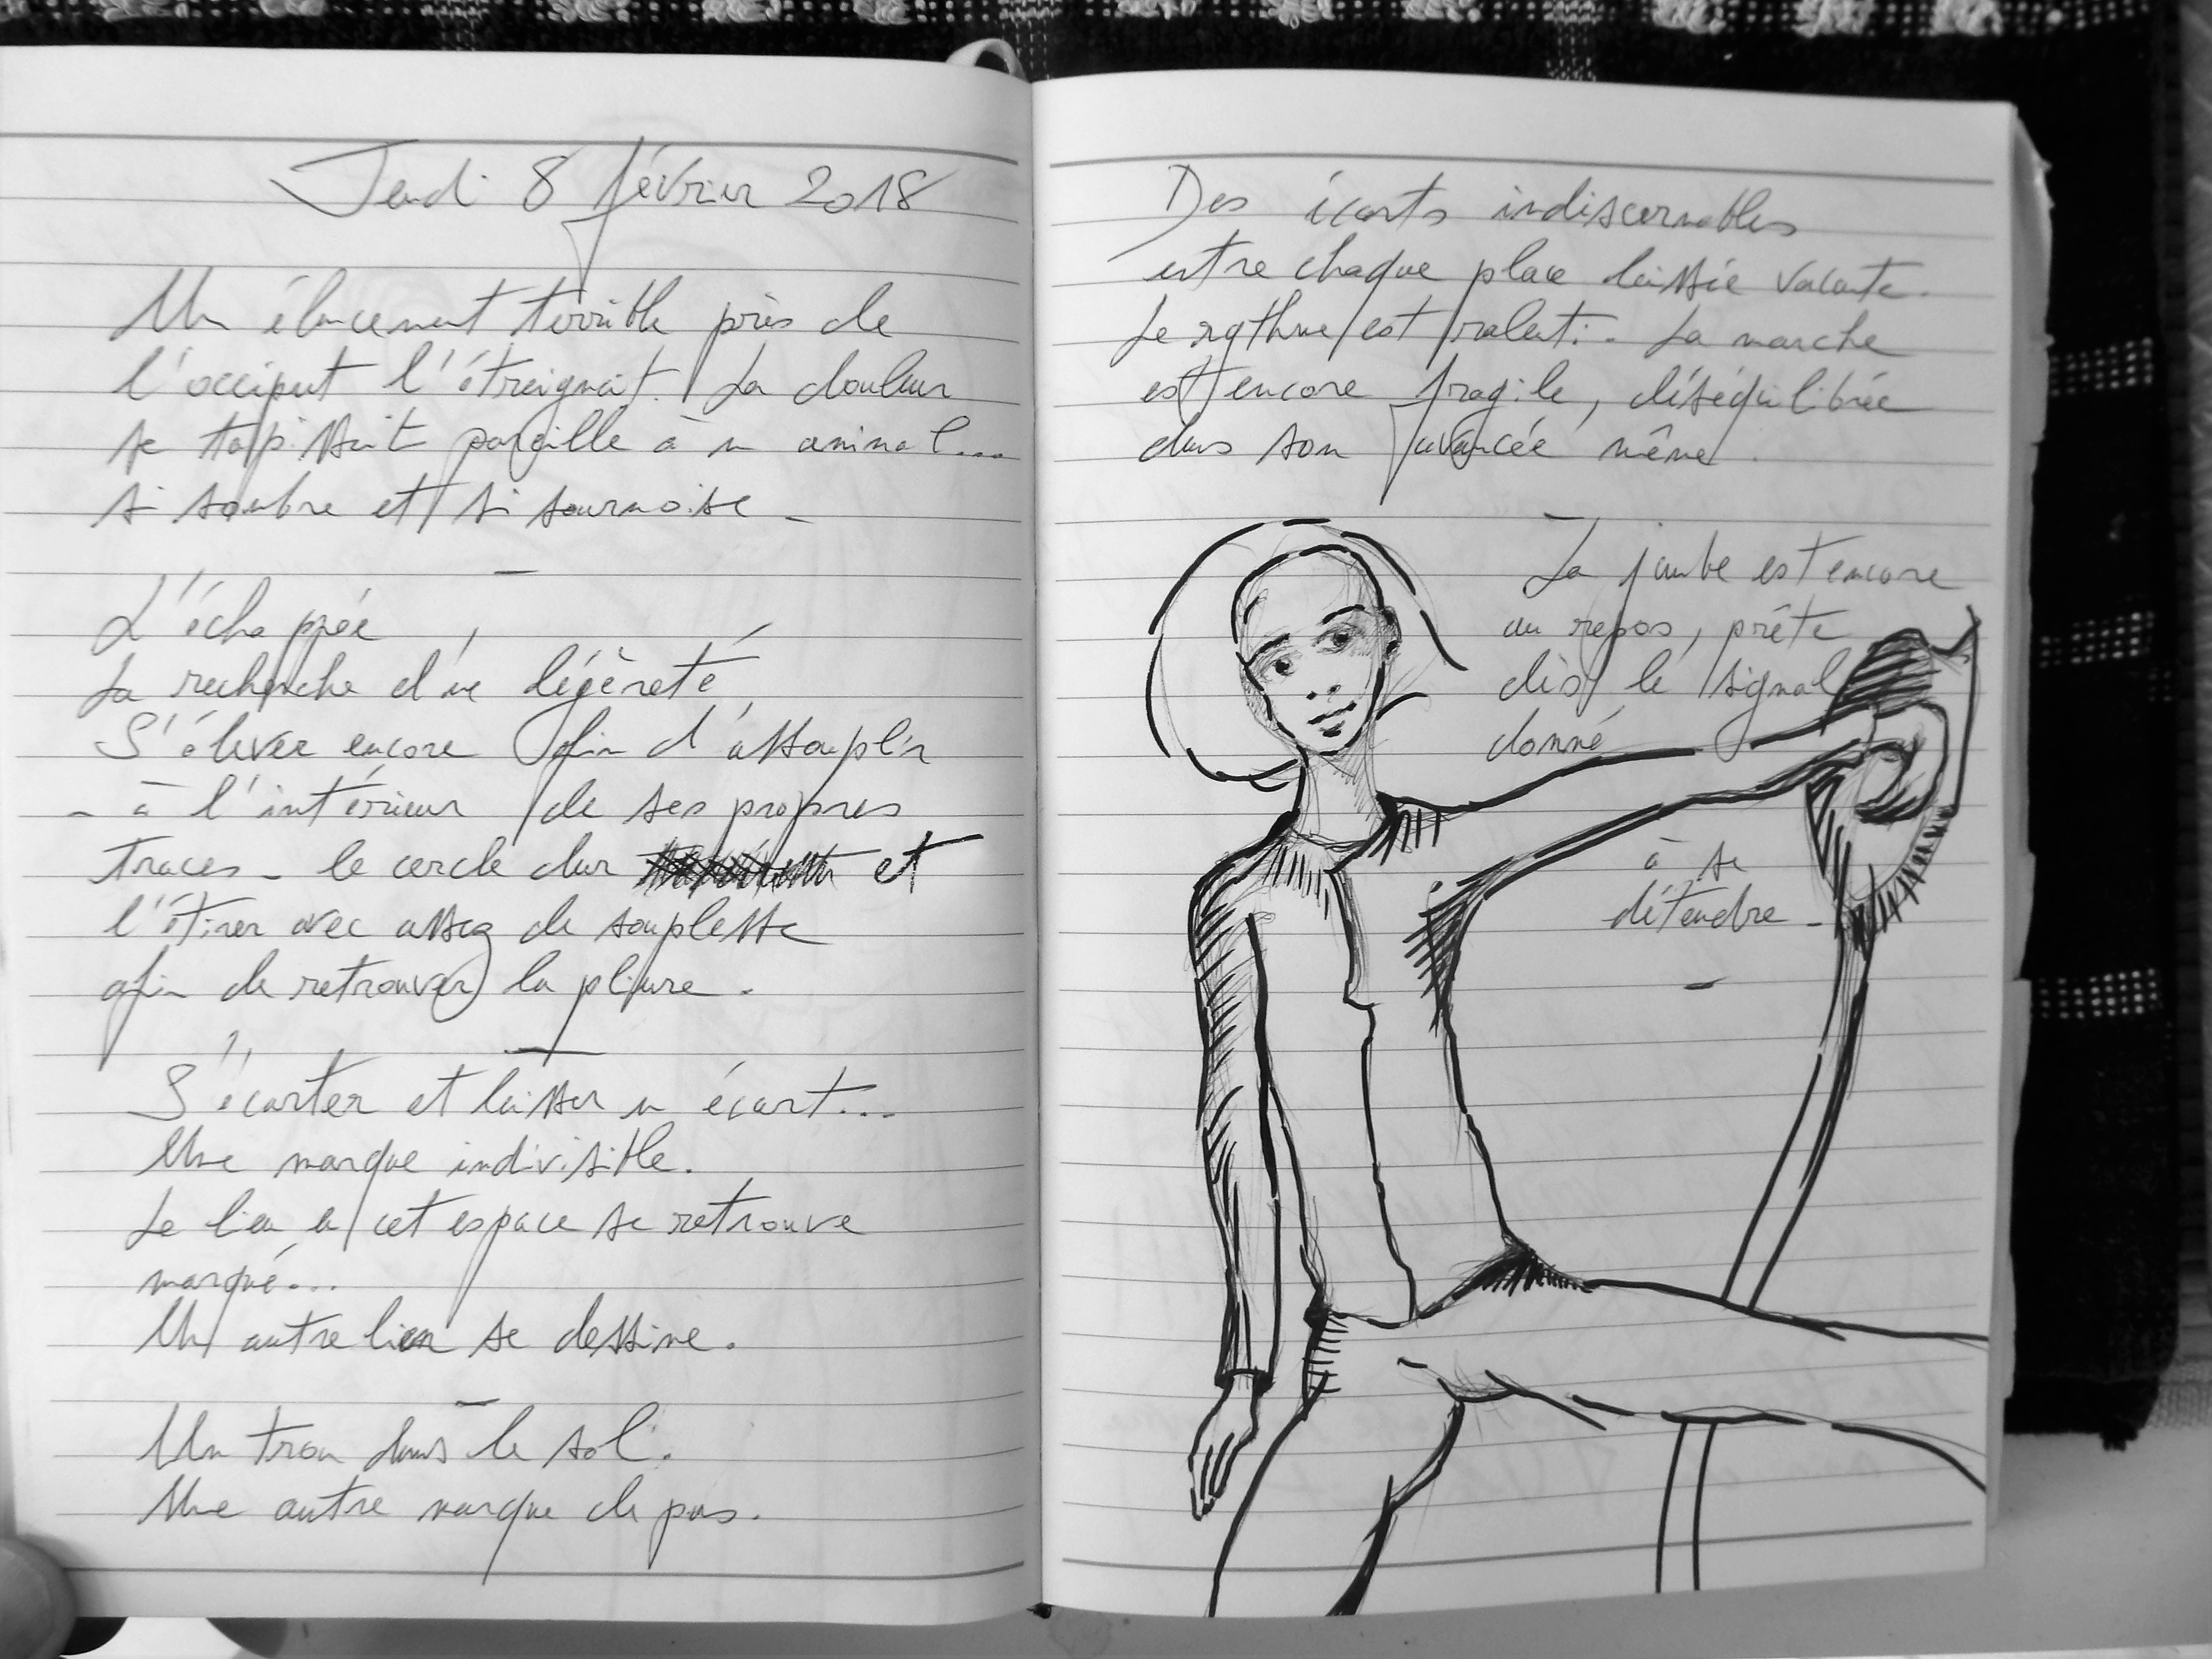 Jeudi 8 février 2018
Un élancement terrible près de
l'occiput l'étreignait. La douleur
se tapissait pareille à un animal...
si sombre et si sournoise -
L'échappée,
La recherche d'une légèreté,
S'élever encore afin d'assouplir
- à l'intérieur de ses propres
traces - le cercle dur et
l'étirer avec assez de souplesse
afin de retrouver la pliure.
S'écarter et laisser un écart...
Une marque indivisible.
Le lieu en cet espace se retrouve
marqué...
Un autre lien se dessine.
Un trou dans le sol.
Une autre marque de pas.
Des écarts indiscernables
entre chaque place laissée vacante.
Le rythme est ralenti. La marche
est encore fragile, déséquilibrée
dans son avancée même.
La jambe est encore
au repos, prête
dès le signal
donné
à se
détendre -